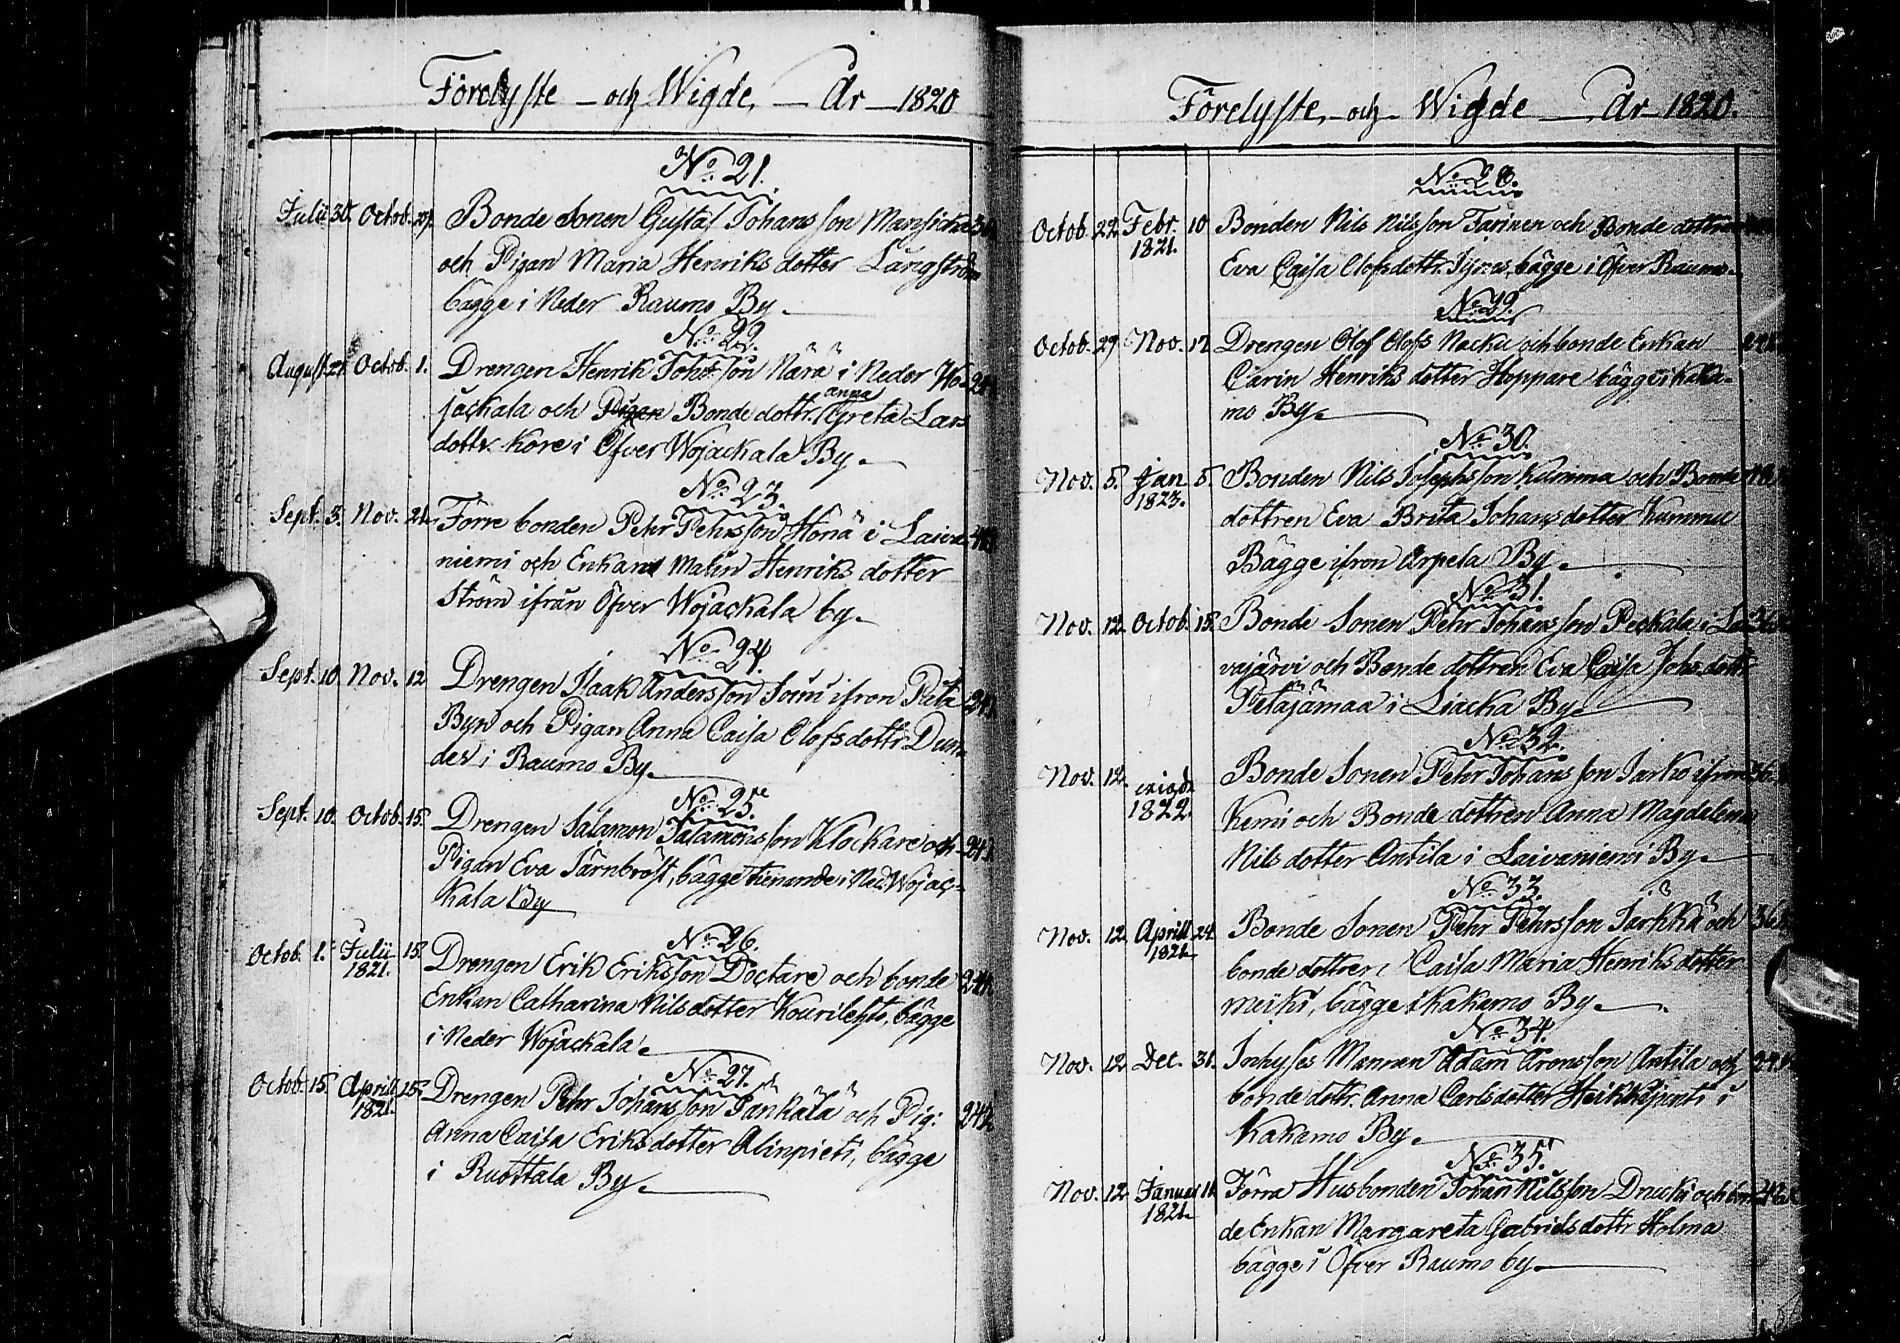 Förelyste – och Wigde, – År – 1820
No 21.
Julii 30. Octob. 29. Bonde Sonen Gustaf Johansson Mansicka
och Pigan Maria Henriks dotter Långström
bägge i Neder Raumo By
No 22.
August. 27. Octob. 1. Drengen Henrik Johansson Närä i Neder Wo- 24
jackala och Pigan Bonde dottr. anna Greta Lars
dottr Kore i Öfver Wojackala By
No 23.
Sept. 3. Nov. 21. Förre bonden Pehr Pehrsson Höriä i Laiva
niemi och Enkan Malin Henriks dotter
Ström ifrån Öfver Wojackala by
No 24.
Sept. 10. Nov. 12 Drengen Isaak Andersson ifron
Byn och Pigan Anna Caisa Olofs dottr Dun
der i Raumo By
No 25.
Sept. 10. Octob. 15. Drengen Salamon Salamonsson Klockare och 24
Pigan Eva Järnbröst, bägge tienande i Ned. Wojac-
kala By
No 26.
Octob. 1. Julii 15. Drengen Erik Eriksson Doctare och bonde 24
1821.
Enkan Catharina Nils dotter Kourilehto, bägge
i Neder Wojackala
No 27.
Octob. 15. Aprill 15. Drengen Pehr Johansson Pänkälä och Pig: 242
1821.
Anna Caisa Eriks dotter Alinpieti, bägge
i Ruottala By
Förelyste, – och – Wigde – År – 1820.
No 28.
Octob. 22. Febr. 10 Bonden Nils Nilsson Tarinen och Bonde dottren
1821.
Eva Caisa Olofs dottr. bägge i Öfver Raumo
No 29.
Octob. 29 Nov. 12 Drengen Olof Olofs Nacku och bonde Enkan 24
Carin Henriks dotter Hoppare bägge i Kaka-
mo By
No 30.
Nov. 5. Jan 5. Bonden Nils Josephsson Kumma och Bonde
1823.
dottren Eva Brita Johans dotter Kummu
Bägge ifron Arpela By
No 31.
Nov. 12. Octob. 15. Bonde Sonen Pehr Johansson Peckala i La
vajärvi och Bonde dottren Eva Caisa Johs. dottr
Petäjämaa i Liacka By
No 32.
Nov. 12. 1822. Bonde Sonen Pehr Johansson Jarko ifron 36
Kemi och Bonde dottren Anna Magdalena
Nils dotter Antila i Laivaniemi By
No 33.
Nov. 12. Aprill 24. Bonde Sonen Pehr Pehrsson Järkkä och 36
1821.
bonde dottren Caisa Maria Henriks dotter
meiki, bägge i Kakamo By
No 34.
Nov. 12 Dec. 31. Inhyses Mannen Adam Aronsson Antila och 24
bonde dottr. Anna Carls dotter Heikkiponti i
Kakamo By
No 35.
Nov. 12. Januar 11. Förra Husbonden Johan Nilsson Drucki och bon
1821.
de Enkan Margareta Gabriels dottr Holma
bägge i Öfver Raumo by